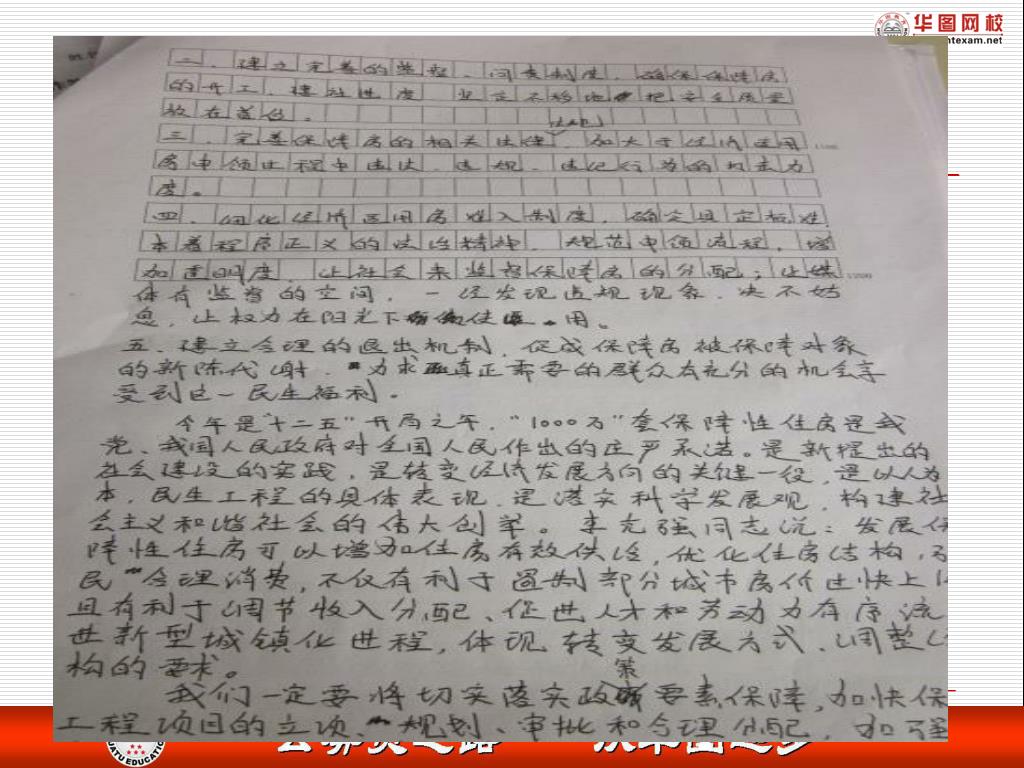 华图网校
ntexam.net
二、建立完善的监督、问责制度，确保保障房
的开工、建设进度 坚定不移地把安全质量
放在首位。
三、完善保障房的相关法律，加大于经济适用
房申领过程中违法、违规、违纪行为的打击力
度。
四、细化经济适用房准入制度，确定且定标准
本着程序正义的法治精神，规范申领流程，增
加透明度，让社会来监督保障房的分配；让媒
体有监督的空间，一经发现违规现象，决不姑
息，让权力在阳光下使用。
五、建立合理的退出机制，促成保障房被保障对象
的新陈代谢，力求真正需要的群众有充分的机会享
受到这一民生福利。
今年是“十二五”开局之年，“1000万”套保障性住房是我
党、我国人民政府对全国人民作出的庄严承诺。是新提出的
社会建设的实践，是转变经济发展方向的关键一役，是以人为
本，民生工程的具体表现，是落实科学发展观，构建社
会主义和谐社会的伟大创举。李克强同志说：发展保
障性住房可以增加住房有效供给，优化住房结构，引
民合理消费，不仅有利于遏制部分城市房价过快上
且有利于调节收入分配、促进人才和劳动力有序流
进新型城镇化进程，体现转变发展方式、调整
构的要求。
我们一定要将切实落实政策要素保障，加快保
工程项目的立项、规划、审批和合理分配，加强
HUATU EDUCATION